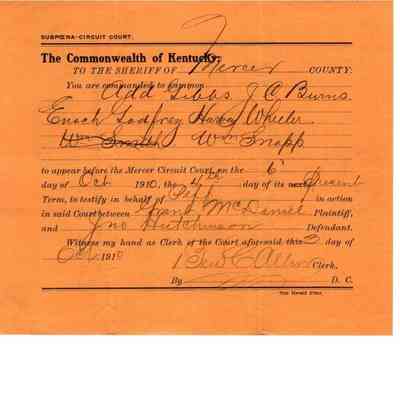 SUBPŒNA-CIRCUIT COURT.
The Commonwealth of Kentucky:
TO THE SHERIFF OF Mercer COUNTY:
You are commanded to summon
Add Gibbs, J. C. Burns.
Enoch Godfrey Harvey Wheeler
Wm Smith Wm Snapp
to appear before the Mercer Circuit Court on the 6
day of Oct 1910, the 4th day of its next present
Term, to testify in behalf of Plff in action
in said Court between McDaniel Plaintiff,
and Jno Hutchinson Defendant.
Witness my hand as Clerk of the Court aforesaid, this 3 day of
Oct 1910
Ben C Allin Clerk,
By D. C.